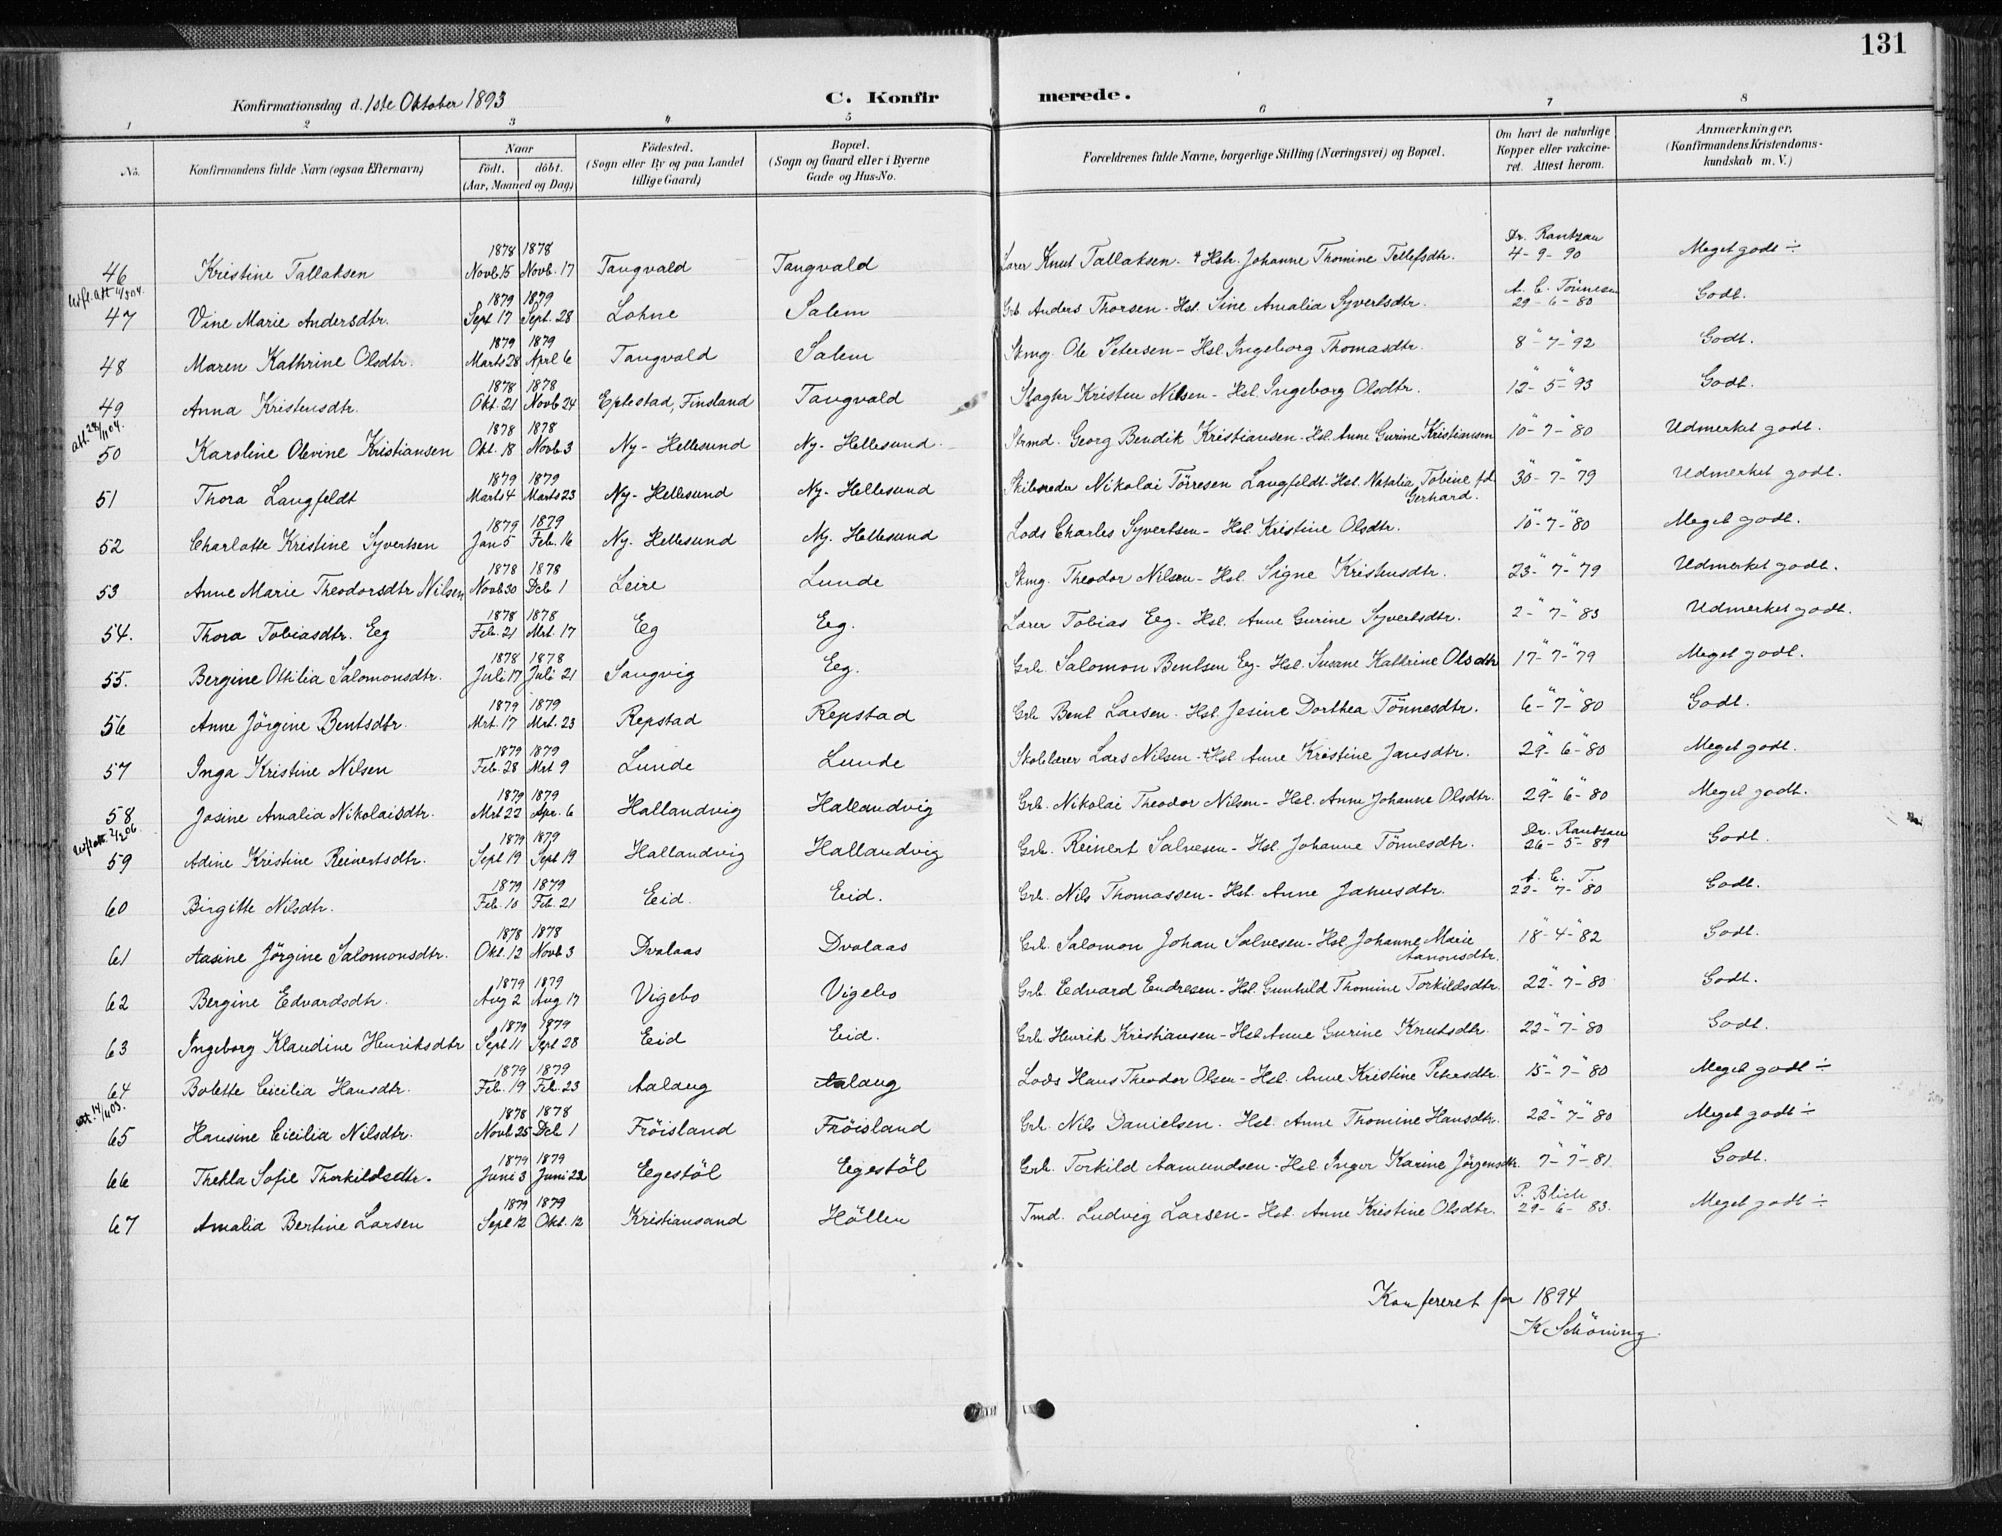 131
Konfirmationsdag d. 1ste Oktober 1893
C. Konfirmerede.
1 2 3 4 5 6 7 8
No. Konfirmandens fulde Navn (ogsaa Efternavn) Naar födt. döbt. (Aar, Maaned og Dag) Födested. (Sogn eller By og paa Landet tillige Gaard) Bopæl. (Sogn og Gaard eller i Byerne Gade og Hus-No. Forældrenes fulde Navne, borgerlige Stilling (Næringsvei) og Bopæl. Om havt de naturlige Kopper eller vakcineret. Attest herom. Anmærkninger, (Konfirmandens Kristendomskundskab m. V.)
46 Kristine Tallaksen 1878 Novb. 15 1878 Novb. 17 Tangvald Tangvald Lærer Knut Tallaksen. + Hstr. Johanne Thomine Tellefsdtr. Dr. Rantzau 4-9-90 Meget godt ÷
47 Vine Marie Andersdtr. 1879 Sept 17 1879 Sept. 28 Lohne Salem Grb. Anders Thorsen - Hst. Sine Amalia Syvertsdtr. A. E. Tönnesen 29-6-80 Godt.
48 Maren Kathrine Olsdtr. 1879 Marts 28 1879 April 6 Tangvald Salem Skmg. Ole Petersen - Hsl. Ingeborg Thomasdtr. 8"-7-"92 Godt.
49 Anna Kristensdtr. 1878 Okt. 21 1878 Novb 24 Eplestad, Finsland Tangvald Slagter Kristen Nilsen - Hst. Ingeborg Olsdtr. 12"-5-"93 Godt.
50 Karoline Olevine Kristiansen 1878 Okt. 18 1878 Novb. 3 Ny-Hellesund Ny-Hellesund. Strmd. Georg Bendik Kristiansen. Hsl. Anne Gurine Kristiansen 10"-7-"80 Udmerket godt.
51 Thora Langfeldt 1879 Marts 4 1879 Marts 23 Ny-Hellesund Ny-Hellesund Skibsreder Nikolai Törresen Langfeldt. Hst. Natalia Tobine fd. Gerhard. 30"-7-"79 Udmerket godt.
52 Charlotte Kristine Syvertsen 1879 Jan 5 1879 Feb. 16 Ny-Hellesund Ny. Hellesund Lods Charles Syvertsen - Hsl. Kristine Olsdtr. 10"-7-"80 Meget godt.
53 Anne Marie Theodorsdtr Nilsen 1878 Novb 30 1878 Dcb 1 Leire Lunde Skmg. Theodor Nilsen - Hsl. Signe Kristensdtr. 23"-7-"79 Udmerket godt.
54. Thora Tobiasdtr. Eeg 1878 Feb. 21 1878 Mrt. 17 Eg Eeg. Lærer Tobias Eeg - Hsl. Anne Gurine Syvertsdtr. 2-"7-"83 Udmerket godt.
55. Bergine Ottilia Salomonsdtr. 1878 Juli 17 1878 Juli 21 Sangvig Eeg. Grb. Salomon Bentsen Eeg - Hsl. Susane Kathrine Olsdtr 17"-7-"79 Meget godt.
56 Anne Jörgine Bentsdtr. 1879 Mrt. 17 1879 Mrt. 23 Repstad Repstad Grb Bent Larsen. Hst. Jesine Dorthea Tönnesdtr. 6"-7-"80 Godt.
57 Inga Kristine Nilsen 1879 Feb. 28 1879 Mrt 9 Lunde Lunde Skolelærer Lars Nilsen - +Hsl Anne Kristine Jansdtr. 29-"6-"80 Meget godt.
58 Josine Amalia Nikolaisdtr. 1879 Mrt 22 1879 Apr. 6 Hallandvig Hallandvig Grb. Nikolai Theodor Nilsen - Hsl. Anne Johanne Olsdtr. 29-"6-"80 Meget godt.
59 Adine Kristine Reinertsdtr. 1879 Sept 19 1879 Sept 19 Hallandvig Hallandvig Grb. Reinert Salvesen - Hsl. Johanne Tönnesdtr. Dr. Rantzau 26-5-89 Godt.
60 Birgitte Nilsdtr. 1879 Feb. 10 1879 Feb. 21 Eid. Eid. Grb. Nils Thomassen - Hst. Anne Jansdtr. A. E. T. 22-7-80 Godt.
61 Aasine Jörgine Salomonsdtr. 1878 Okt. 12 1878 Novb 3 Dvalaas Dvalaas Grb. Salomon Johan Salvesen - Hsl Johanne Marie Aanonsdtr. 18"-4-"82 Godt.
62 Bergine Edvardsdtr. 1879 Aug 2 1879 Aug 17 Vigebo Vigebo Grb. Edvard Endresen - Hsl. Gunhild Thomine Torkildsdtr. 22"-7-"80 Godt.
63 Ingeborg Klaudine Henriksdtr 1879 Sept 11 1879 Sept 28 Eid Eid. Grb Henrik Kristiansen - Hst Anne Gurine Knutsdtr. 22-"7-"80 Godt.
64 Bolette Cicilia Hansdtr. 1879 Feb. 19 1879 Feb. 23 Aalaug Aalaug Lods Hans Theodor Olsen - Hsl. Anne Kristine Petersdtr. 15"-7-"80 Meget godt ÷
65 Hansine Cicilia Nilsdtr. 1878 Novb 25 1878 Dcb 1 Fröisland Fröisland Grb. Nils Danielsen. Hst. Anne Thomine Hansdtr. 22"-7-"80 Meget godt ÷
66 Thekla Sofie Thorkildsdtr. 1879 Juni 3 1879 Juni 22 Egestöl Egestöl Grb. Torkild Aamundsen - Hsl. Inger Karine Jörgensdtr. 7"-7-"81 Godt.
67 Amalia Bertine Larsen 1879 Sept 12 1879 Okt. 12 Kristiansand Höllen Tmd. Ludvig Larsen - Hst. Anne Kristine Olsdtr. P. Blich 29-6-83. Meget godt ÷
Konfereret for 1894
K Schöning.